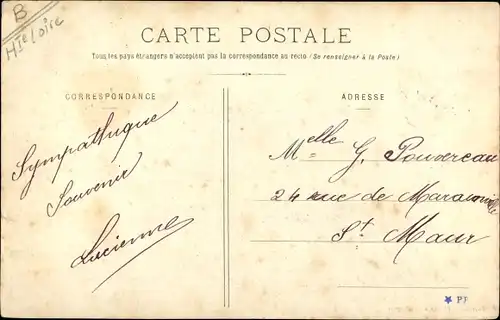 B
Hte Loire
CARTE POSTALE
Tous les pays étrangers n'acceptent pas la correspondance au recto (Se renseigner à la Poste)
CORRESPONDANCE
Sympathique
Souvenir
Lucienne
ADRESSE
Melle G. Pouvereau
24 rue de
St Maur